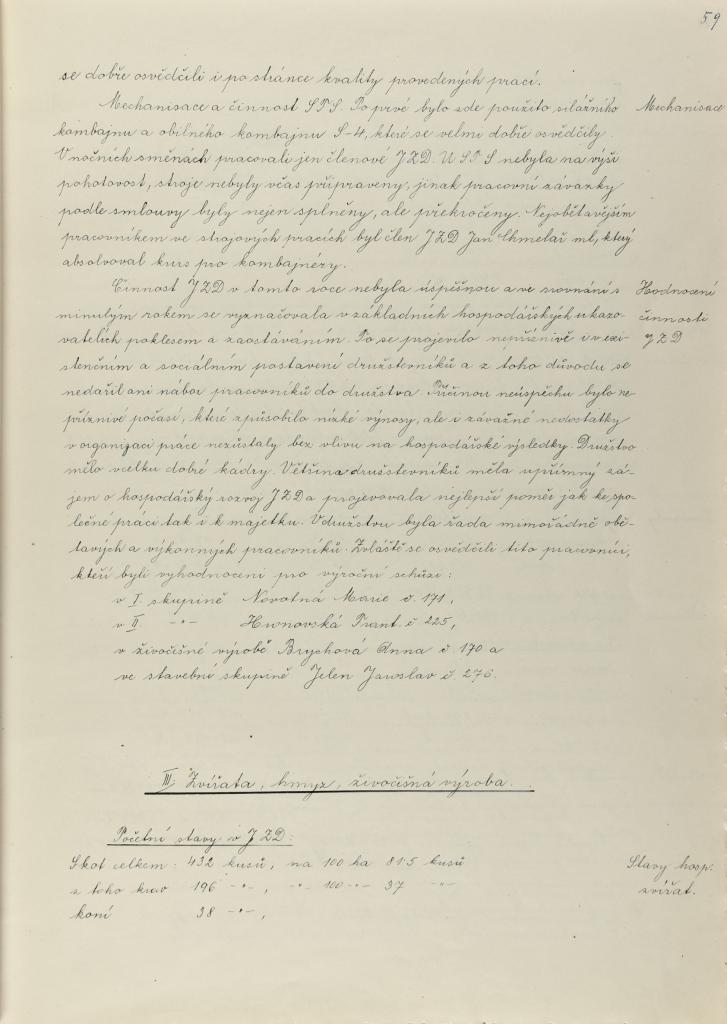 59
se dobře osvědčili i po stránce kvality provedených prací.
Mechanisace a činnost STS. Po prvé bylo zde použito silážního
Mechanisace
kombajnu a obilného kombajnu S-4, které se velmi dobře osvědčily.
V nočních směnách pracovali jen členové JZD. U STS nebyla na výši
pohotovost, stroje nebyly včas připraveny, jinak pracovní závazky
podle smlouvy byly nejen splněny, ale překročeny. Nejobětavějším
pracovníkem ve strojových pracích byl člen JZD Jan Chmelař ml, který
absolvoval kurs pro kombajnéry.
Činnost JZD v tomto roce nebyla úspěšnou a ve srovnání s
Hodnocení
minulým rokem se vyznačovala v základních hospodářských ukazo-
činnosti
vatelích poklesem a zaostáváním. To se projevilo nepříznivě i v exi-
JZD
stenčním a sociálním postavení družstevníků a z toho důvodu se
nedařil ani nábor pracovníků do družstva. Příčinou neúspěchu bylo ne-
příznivé počasí, které způsobilo nízké výnosy, ale i závažné nedostatky
v organizaci práce nezůstaly bez vlivu na hospodářské výsledky. Družstvo
mělo vcelku dobré kádry. Většina družstevníků měla upřímný zá-
jem o hospodářský rozvoj JZD a projevovala nejlepší poměr jak ke spo-
lečné práci tak i k majetku. V družstvu byla řada mimořádně obě-
tavých a výkonných pracovníků. Zvláště se osvědčili tito pracovníci,
kteří byli vyhodnoceni pro výroční schůzi:
v I. skupině Novotná Marie č. 171,
v II. -"- Hronovská Frant. č 225,
v živočišné výrobě Brychová Anna č. 170 a
ve stavební skupině Jelen Jaroslav č. 276.
III. Zvířata, hmyz, živočišná výroba.
Početní stavy v JZD:
Skot celkem: 432 kusů, na 100 ha 81.5 kusů
Stavy hosp.
z toho krav 196 -"-, -"- 100 -"- 37 -"-
zvířat.
koní 38 -"-,